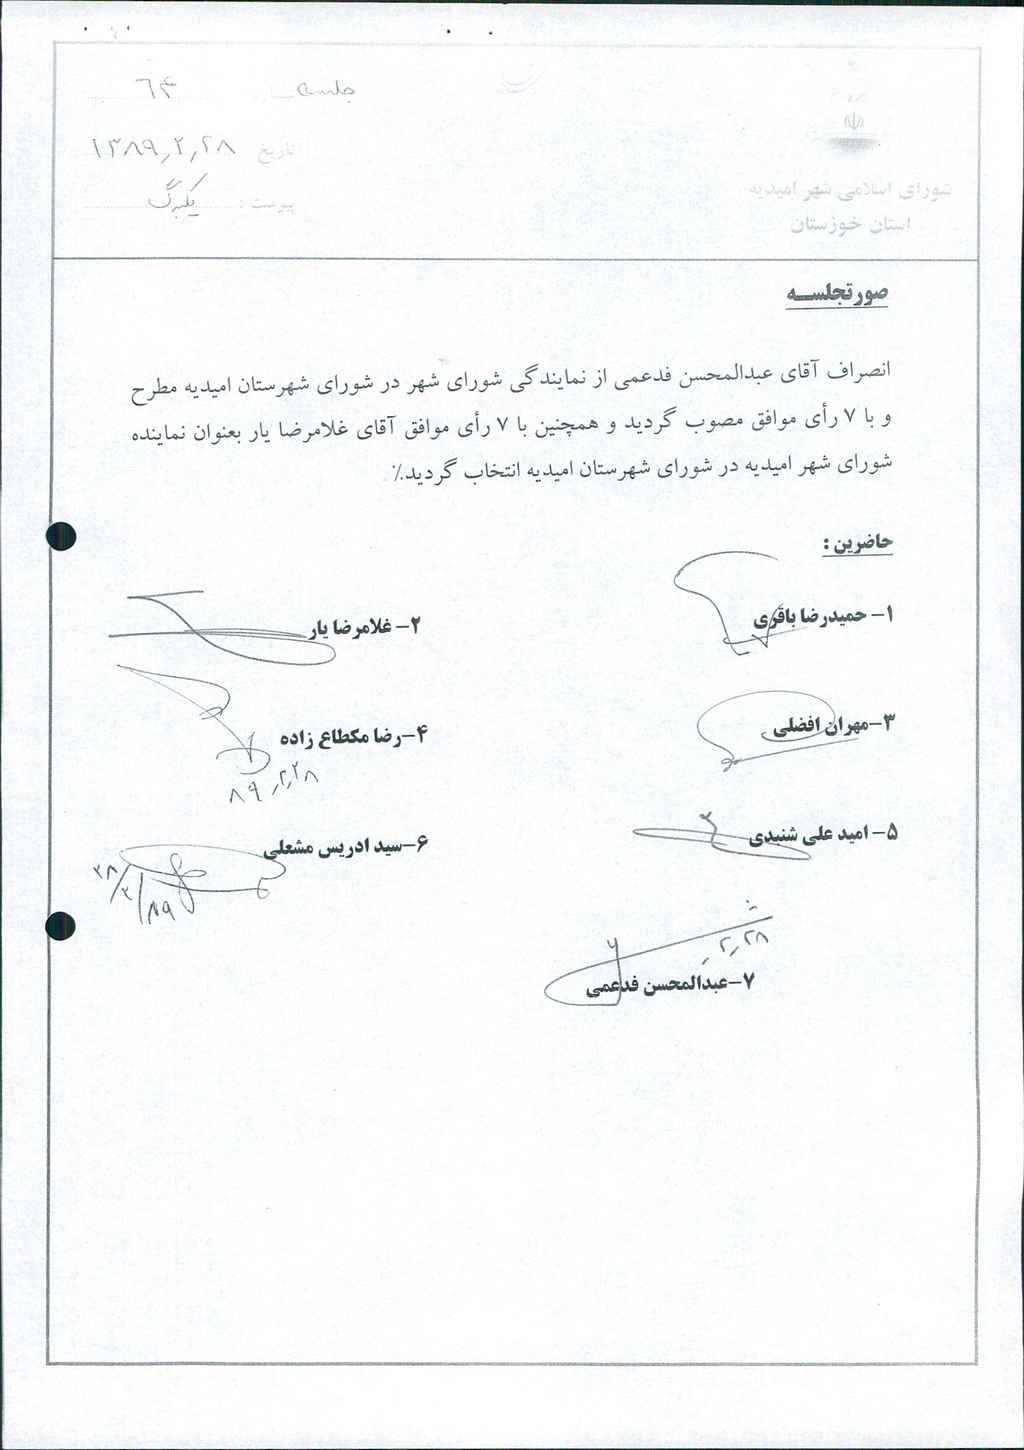 جلسه ۶۴
تاریخ ۱۳۸۹٫۲٫۲۸
پیوست : یکبرگ
شورای اسلامی شهر امیدیه
استان خوزستان
صورتجلسه
انصراف آقای عبدالمحسن فدعمی از نمایندگی شورای شهر در شورای شهرستان امیدیه مطرح
و با ۷ رأی موافق مصوب گردید و همچنین با ۷ رأی موافق آقای غلامرضا یار بعنوان نماینده
شورای شهر امیدیه در شورای شهرستان امیدیه انتخاب گردید.٪
حاضرین :
۱- حمیدرضا باقری
۲- غلامرضا یار
۳-مهران افضلی
۴-رضا مکطاع زاده
۸۹٫۲٫۲۸
۵- امید علی شنبدی
۶-سید ادریس مشعلی
۲۸/۲/۸۹
۲٫۲۸
۷-عبدالمحسن فدعمی